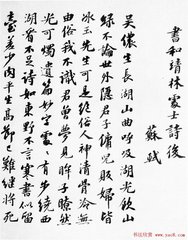 書和靖林處士詩後
蘇軾
吳儂生長湖山曲呼吸湖光飲山
綠不論世外隱君子傭兒販婦皆
冰玉先生可是絕俗人神清骨冷無
由俗我不識君曾夢見眸子瞭然
光可燭遺篇妙字處處有步繞西
湖看不足詩如東野不言寒書似留
臺差少肉平生高節已難繼將死